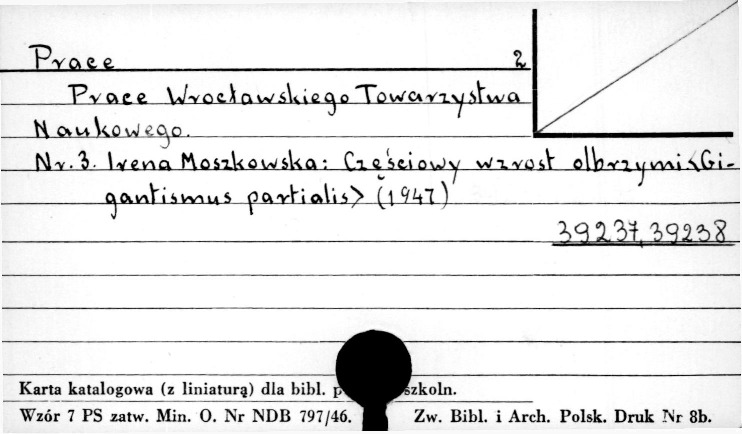 Prace 2
Prace Wrocławskiego Towarzystwa
Naukowego.
Nr. 3. Irena Moszkowska: Częściowy wzrost olbrzymi <Gi-
gantismus partialis> (1947)
39237, 39238
Karta katalogowa (z liniaturą) dla bibl. szkoln.
Wzór 7 PS zatw. Min. O. Nr NDB 797/46. Zw. Bibl. i Arch. Polsk. Druk Nr 8b.